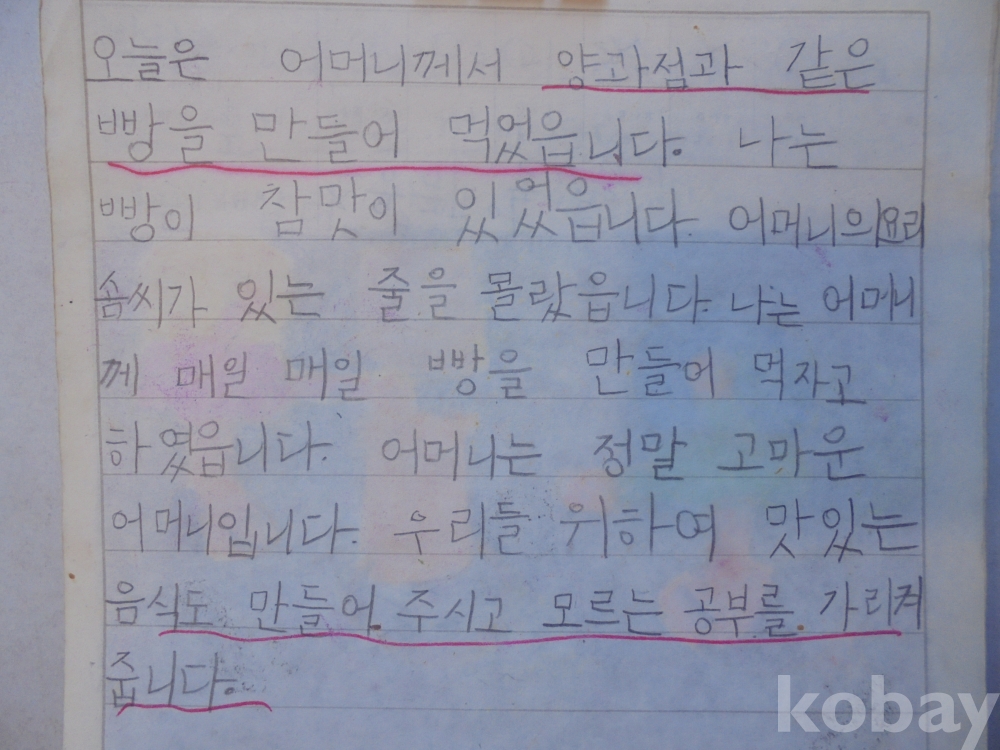 오늘은 어머니께서 양과점과 같은
빵을 만들어 먹었읍니다. 나는
빵이 참맛이 있었읍니다. 어머니의 요리
솜씨가 있는 줄을 몰랐읍니다. 나는 어머니
께 매일 매일 빵을 만들어 먹자고
하였읍니다. 어머니는 정말 고마운
어머니입니다. 우리들 위하여 맛있는
음식도 만들어 주시고 모르는 공부를 가리켜
줍니다.
kobay